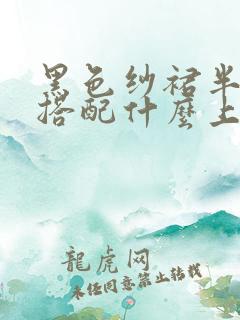 黑色纱裙半
搭配什麼上
龍虎网
未经同意禁止转载